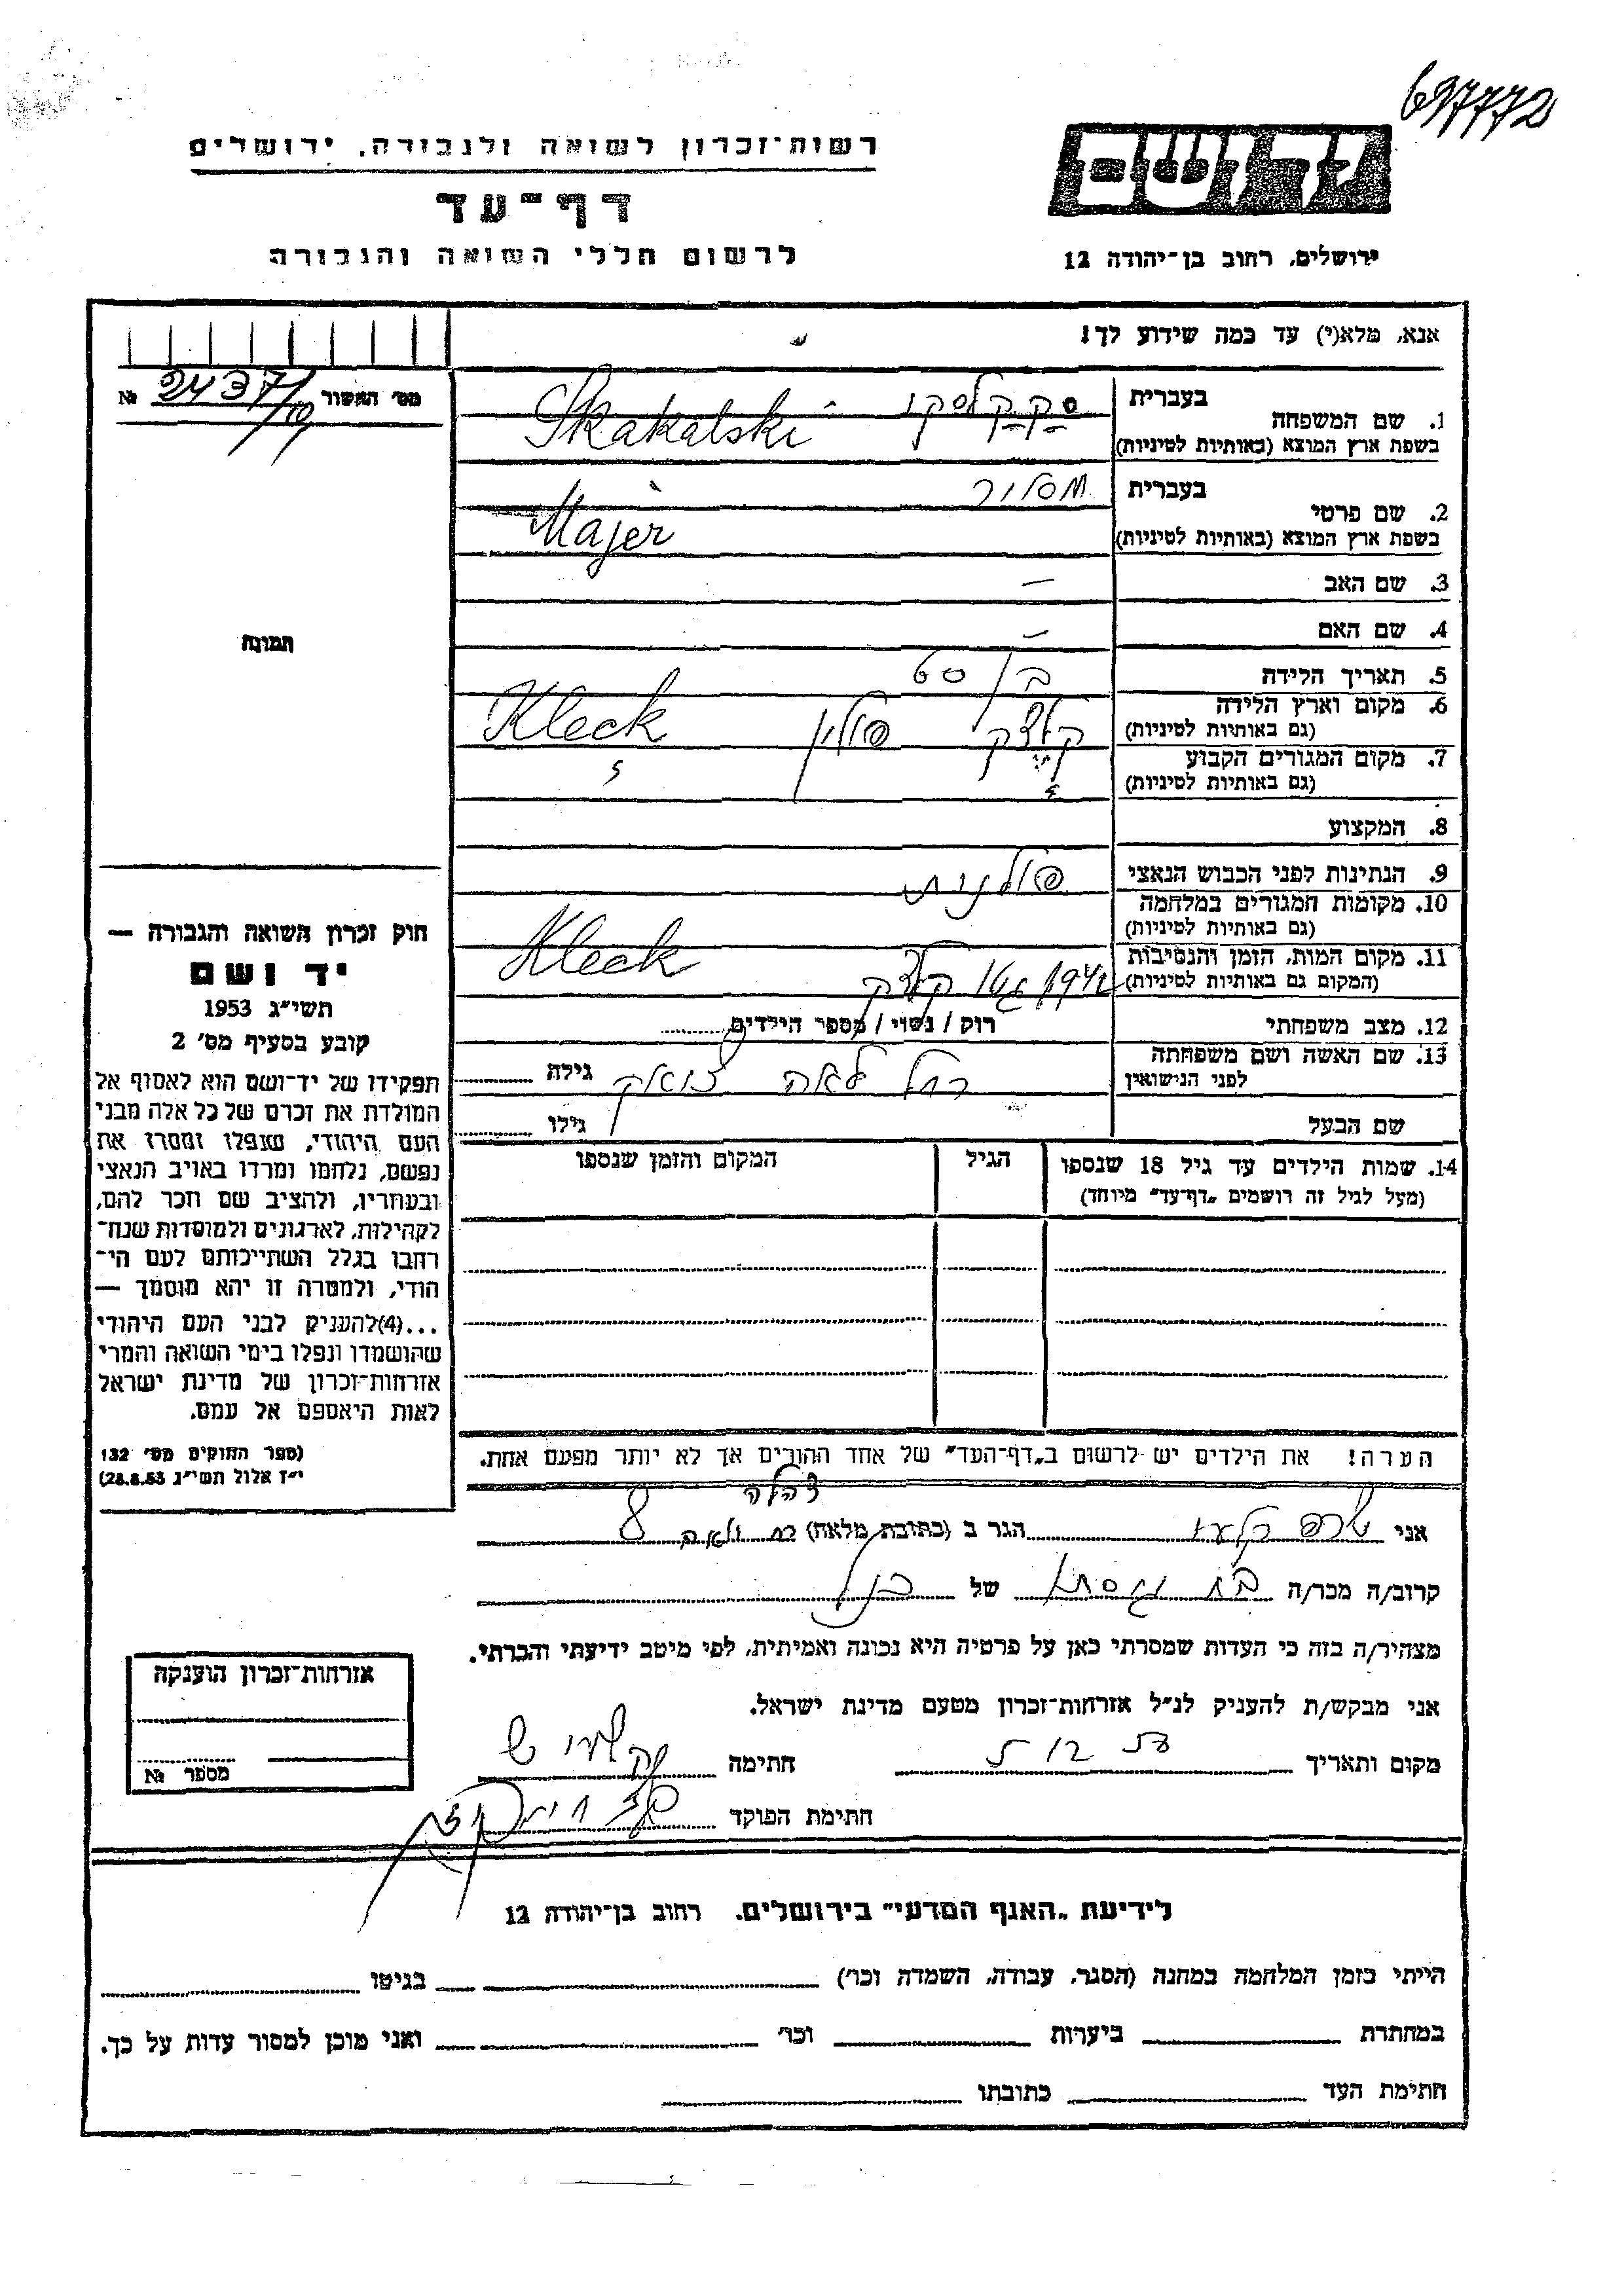 697772
רשות־זכרון לשואה ולגבורה, ירושלים
דף־עד
לרשום חללי השואה והגבורה
יד ושם
ירושלים, רחוב בן־יהודה 12
אנא, מלא(י) עד כמה שידוע לך!
מס׳ האשור
№ 2437/
1. שם המשפחה
בעברית סקקלסקי
בשפת ארץ המוצא (באותיות לטיניות) Skakalski
2. שם פרטי
בעברית
בשפת ארץ המוצא (באותיות לטיניות) Majer
3. שם האב –
4. שם האם –
5. תאריך הלידה בן 60
6. מקום וארץ הלידה
(גם באותיות לטיניות) קלצק פולין Kleck
7. מקום המגורים הקבוע
(גם באותיות לטיניות)
8. המקצוע
9. הנתינות לפני הכבוש הנאצי פולנית
10. מקומות המגורים במלחמה
(גם באותיות לטיניות)
11. מקום המות, הזמן והנסיבות
(המקום גם באותיות לטיניות) 1942 גטו קלצק Kleck
12. מצב משפחתי רווק / נשוי / מספר הילדים
13. שם האשה ושם משפחתה
לפני הנישואין רחל לאה גילה
שם הבעל גילו
14. שמות הילדים עד גיל 18 שנספו
(מעל לגיל זה רושמים „דף־עד״ מיוחד)
הגיל
המקום והזמן שנספו
תמונה
חוק זכרון השואה והגבורה —
יד ושם
תשי״ג 1953
קובע בסעיף מס׳ 2
תפקידו של יד־ושם הוא לאסוף אל
המולדת את זכרם של כל אלה מבני
העם היהודי, שנפלו ומסרו את
נפשם, נלחמו ומרדו באויב הנאצי
ובעוזריו, ולהציב שם וזכר להם,
לקהילות, לארגונים ולמוסדות שנח־
רבו בגלל השתייכותם לעם הי־
הודי, ולמטרה זו יהא מוסמך —
...(4)להעניק לבני העם היהודי
שהושמדו ונפלו בימי השואה והמרי
אזרחות־זכרון של מדינת ישראל
לאות היאספם אל עמם.
(ספר החוקים מס׳ 132
י״ז אלול תשי״ג 28.8.53)
הערה! את הילדים יש לרשום ב„דף־העד״ של אחד ההורים אך לא יותר מפעם אחת.
אני הגר ב (כתובת מלאה) 8
קרוב/ה מכר/ה של
מצהיר/ה בזה כי העדות שמסרתי כאן על פרטיה היא נכונה ואמיתית, לפי מיטב ידיעתי והכרתי.
אני מבקש/ת להעניק לנ״ל אזרחות־זכרון מטעם מדינת ישראל.
מקום ותאריך חתימה
חתימת הפוקד
אזרחות־זכרון הוענקה
מספר №
לידיעת „האגף המדעי״ בירושלים, רחוב בן־יהודה 12
הייתי בזמן המלחמה במחנה (הסגר, עבודה, השמדה וכו׳) בגיטו
במחתרת ביערות וכו׳ ואני מוכן למסור עדות על כך.
חתימת העד כתובתו